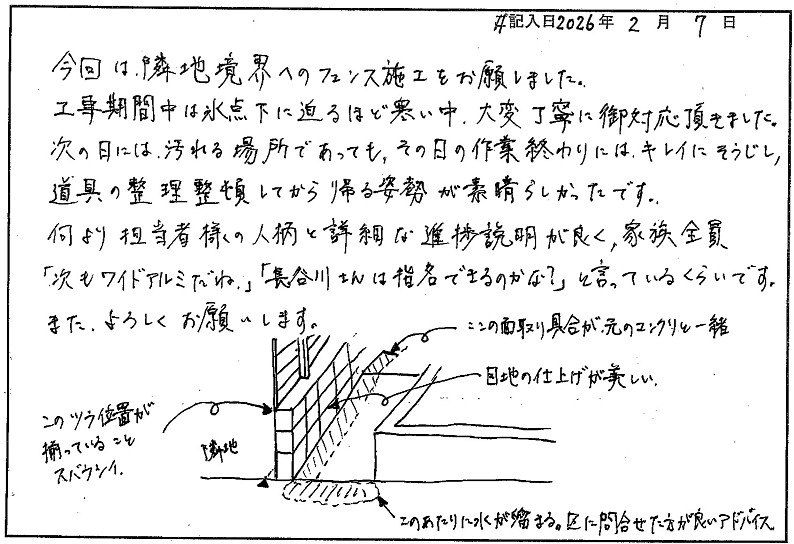 #記入日2026年 2 月 7 日
今回は、隣地境界へのフェンス施工をお願しました。
工事期間中は氷点下に迫るほど寒い中、大変丁寧に御対応頂きました。
次の日には、汚れる場所であっても、その日の作業終わりには、キレイにそうじし、
道具の整理整頓してから帰る姿勢が素晴らしかったです。
何より担当者様の人柄と詳細な進捗説明が良く、家族全員
「次もワイドアルミだね。」「長谷川さんは指名できるのかな?」と言っているくらいです。
また、よろしくお願いします。
ここの面取り具合が、元のコンクリと一緒
目地の仕上げが美しい。
このツラ位置が
揃っていること
スバラシイ。
隣地
このあたりに水が溜まる。区に問合せた方が良いアドバイス